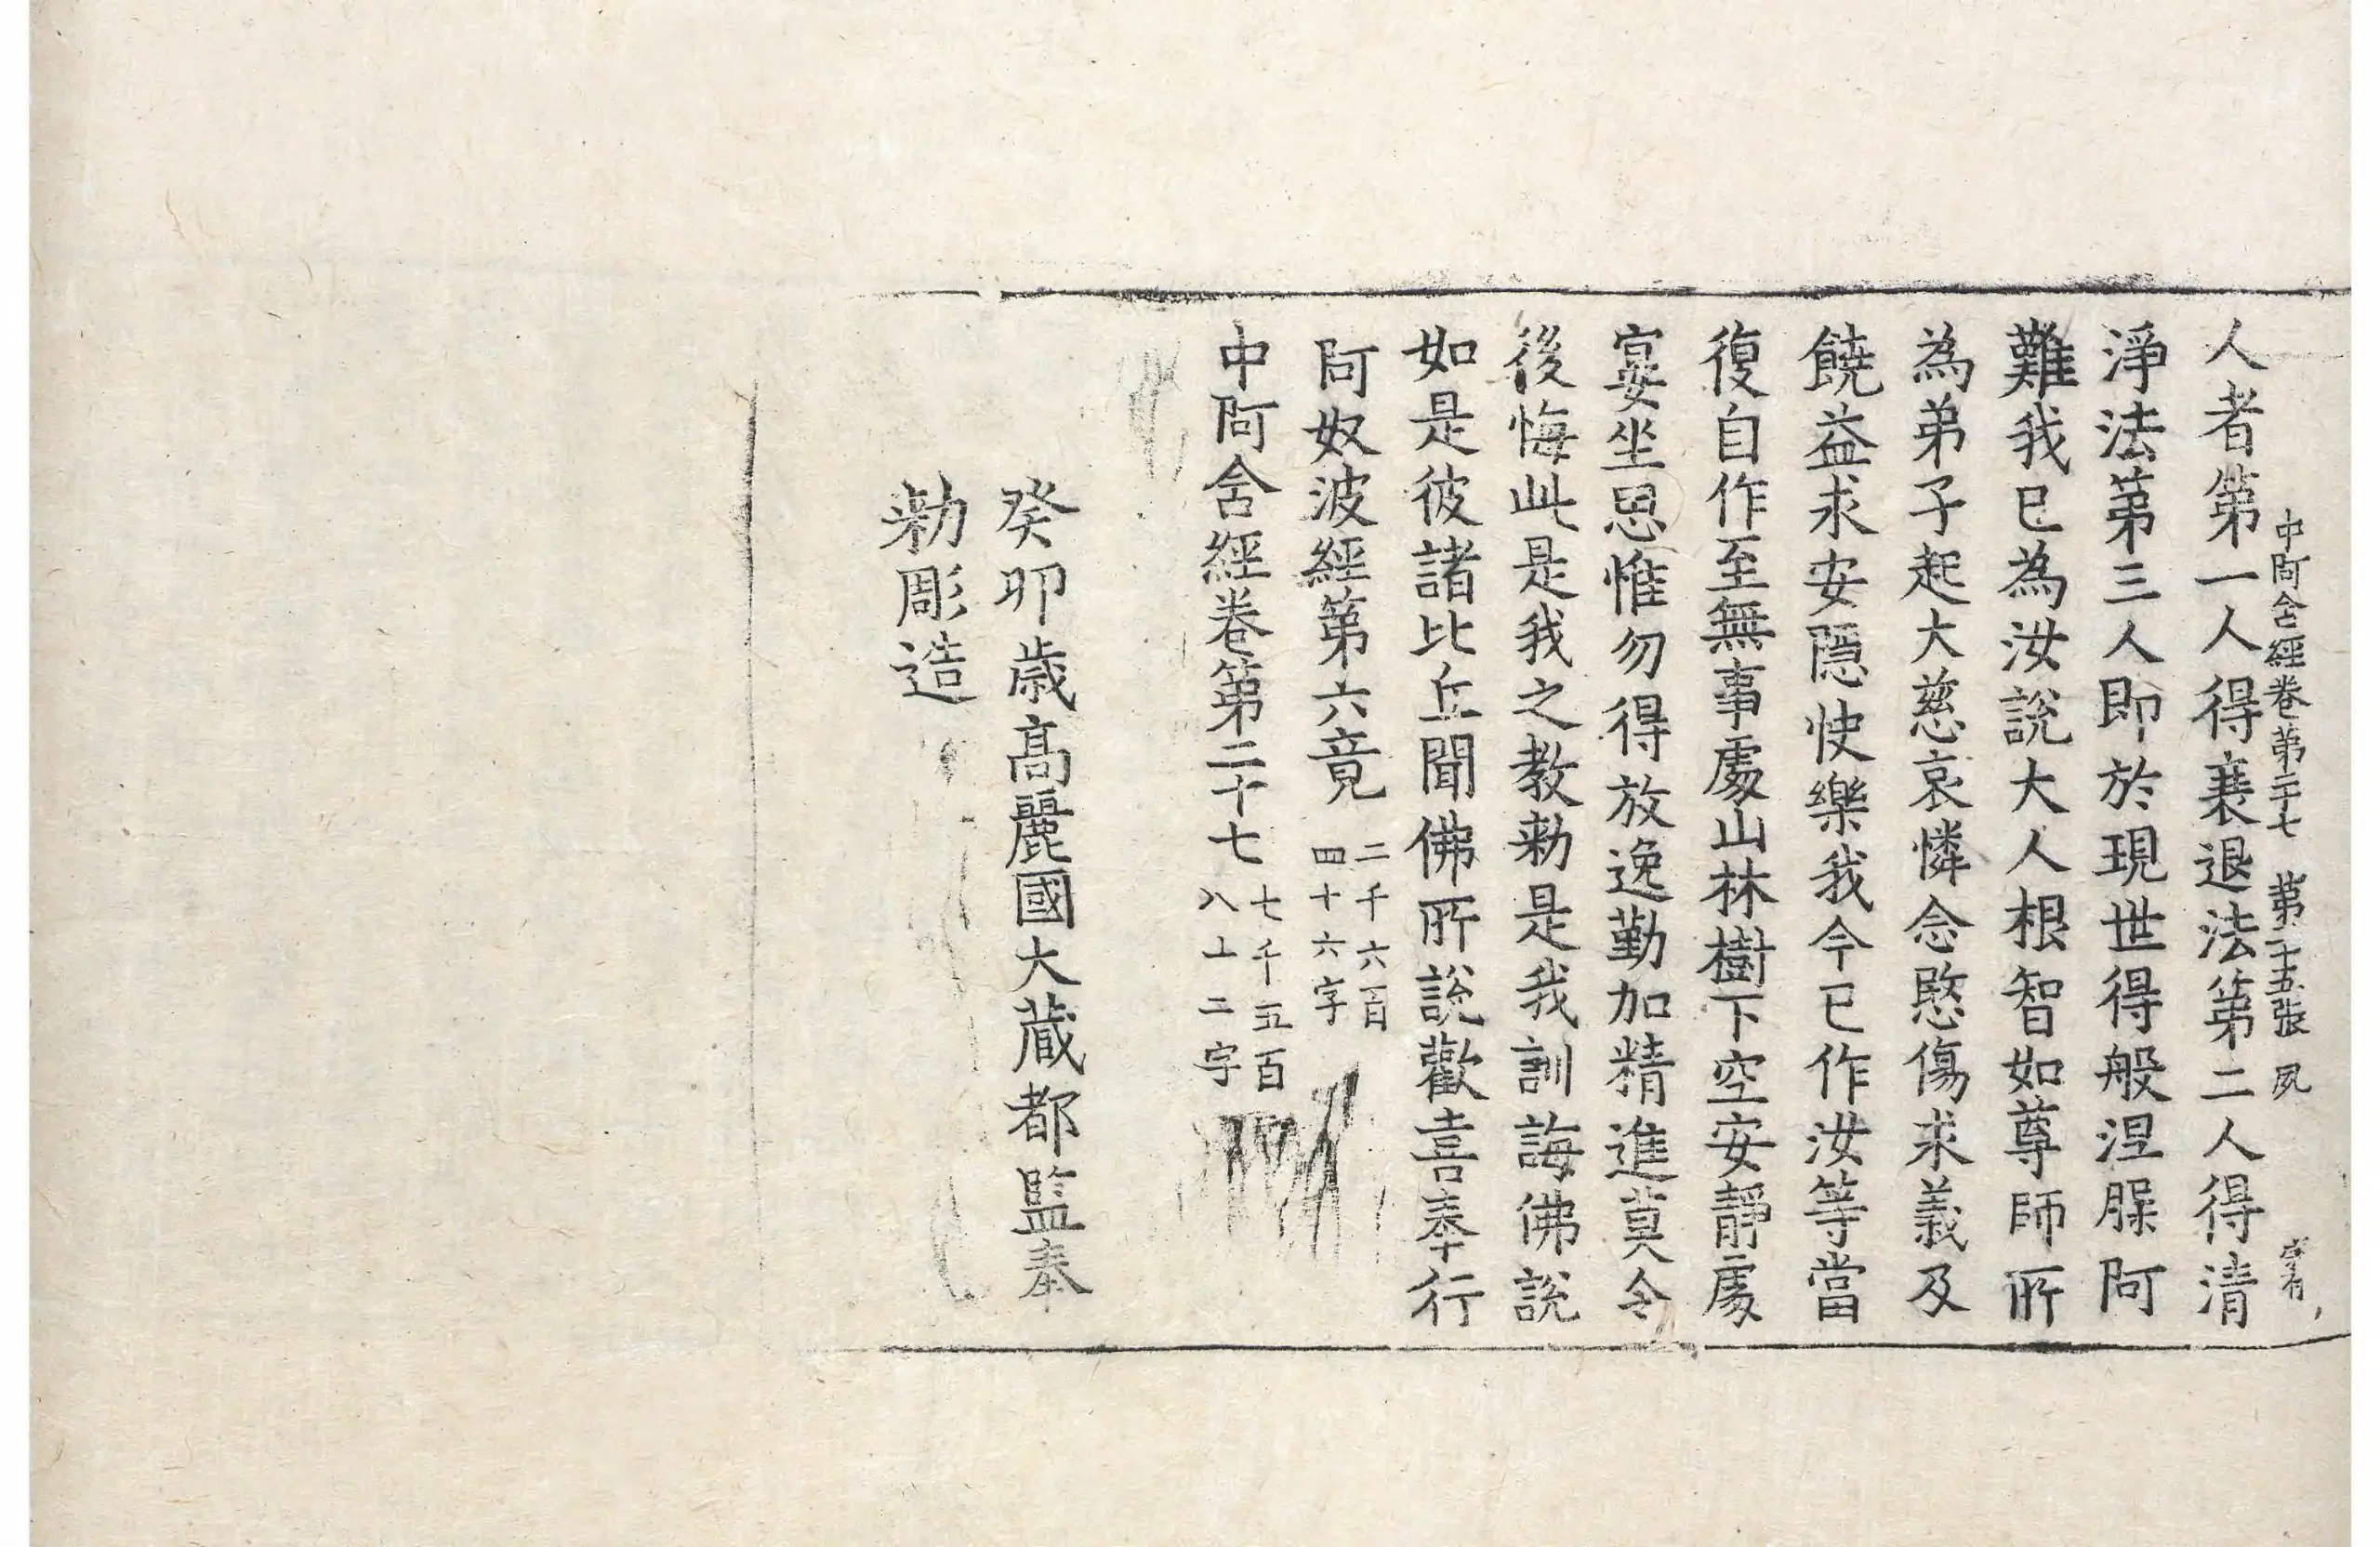 中阿含經卷第二十七 第二十五張 夙
人者第一人得衰退法第二人得清
淨法第三人即於現世得般涅槃阿
難我已為汝說大人根智如尊師所
為弟子起大慈哀憐念愍傷求義及
饒益求安隱快樂我今已作汝等當
復自作至無事處山林樹下空安靜處
宴坐思惟勿得放逸勤加精進莫令
後悔此是我之教勅是我訓誨佛說
如是彼諸比丘聞佛所說歡喜奉行
阿奴波經第六竟 二千六百
四十六字
中阿含經卷第二十七 七千五百
八十二字
癸卯歲高麗國大藏都監奉
勅彫造